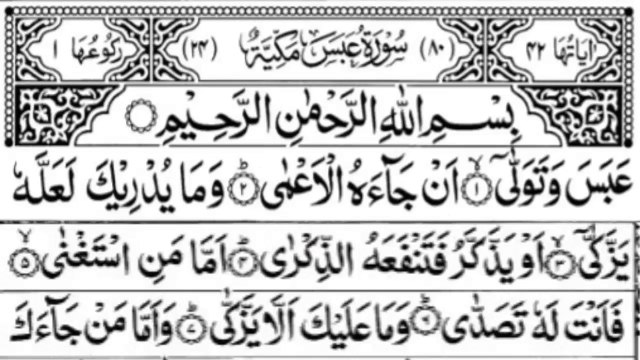 اٰیَاتُهَا ۴۲ (۸۰) سُوْرَةُ عَبَسَ مَكِّیَّةٌ (۲۴) رُكُوْعُهَا ۱
بِسْمِ اللّٰهِ الرَّحْمٰنِ الرَّحِیْمِ
عَبَسَ وَ تَوَلّٰۤیۙ۝۱ اَنْ جَآءَهُ الْاَعْمٰىؕ۝۲ وَ مَا یُدْرِیْكَ لَعَلَّهٗ
یَزَّكّٰۤیۙ۝۳ اَوْ یَذَّكَّرُ فَتَنْفَعَهُ الذِّكْرٰىؕ۝۴ اَمَّا مَنِ اسْتَغْنٰىۙ۝۵
فَاَنْتَ لَهٗ تَصَدّٰىؕ۝۶ وَ مَا عَلَیْكَ اَلَّا یَزَّكّٰىؕ۝۷ وَ اَمَّا مَنْ جَآءَكَ